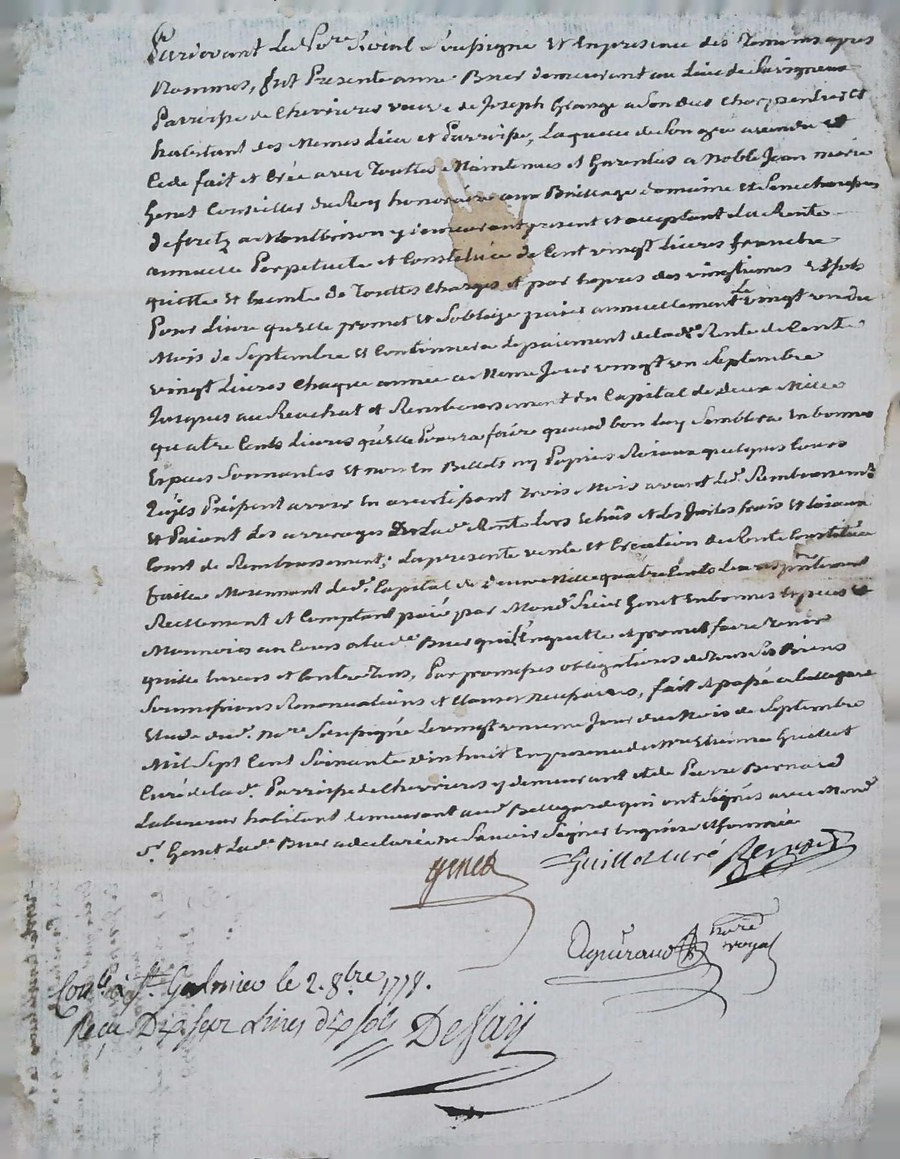 Pardevant Le No.re Royal Soussigné Et En presence des Temoins apres
Nommes, fut Presente anne Buer demeurant au Lieu de
Parroisse de Chevrieres veuve de Joseph Grange a Son decés charpentier Et
habitant des Memes Lieu et Parroisse, Laquelle de Son gré a vendu et
Cede fait et Créé avec Touttes Maintenues et Garenties a Noble Jean marie
Genet Conseiller du Roy honoraire aux Bailliage domaine et Senechaussée
de foretz a Montbrison y demeurant present et acceptant La Rente
annuelle Perpetuelle et Constituée de Cent vingt Livres franche
quitte et Exempte de Touttes Charges et par Expres des vingtiemes Et Sols
Pour Livre qu'elle promet et S'oblige paier annuellement Le vingt un du
Mois de Septembre et Continuera Le paiement de lad.e Rente de Cent
vingt Livres Chaque année a Meme Jour vingt un Septembre
Jusques au Reachat et Remboursement du Capital de deux Mille
quatre Cents Livres qu'elle Pourra faire quand bon Luy Semblera En bonnes
Especes Sonnantes et non En Billets ny Papiers Roiaux quelques Cours
qu'ils Puissent avoir En avertissant Trois Mois avant Led. Remboursem.t
Et Paiant Les arrerages De Lad.e Rente Lors Echûs et Les Justes frais et Loiaux
Cout de Remboursement; La presente vente et Création de Rente Constituée
faitte Moiennant Led. Capital de deux Mille quatre Cents Livres
Reellement et Comptant paié par Mond. Sieur Genet En bonnes Especes et
Monnoies au Cours a Lad.e Buer qui L'En quitte et promet faire Tenir
quitte Envers et Contre Tous, Par promesses obligations de Tous Ses Biens
Soumissions Renonciations et Clauses Necessaires, fait et passé a bellegarde
Etude dud. No.re Soussigné Le vingt unieme Jour du Mois de Septembre
Mil Sept Cent Soixante dix huit En presence de M.re Etienne Guillot
Curé de Lad. Parroisse de Chevrieres y demeurant et de Pierre Bernard
Laboureur habitant demeurant aud. Bellegarde qui ont Signés avec Mond.
S.r Genet Lad.e Buer a declaré ne Savoir Signer Enquise et Sommée
Genet Guillot curé Bernard
notre royal
Con.lé à S.t Galmier le 2. 8bre 1778.
Reçu Dix Sept Livres dix Sols